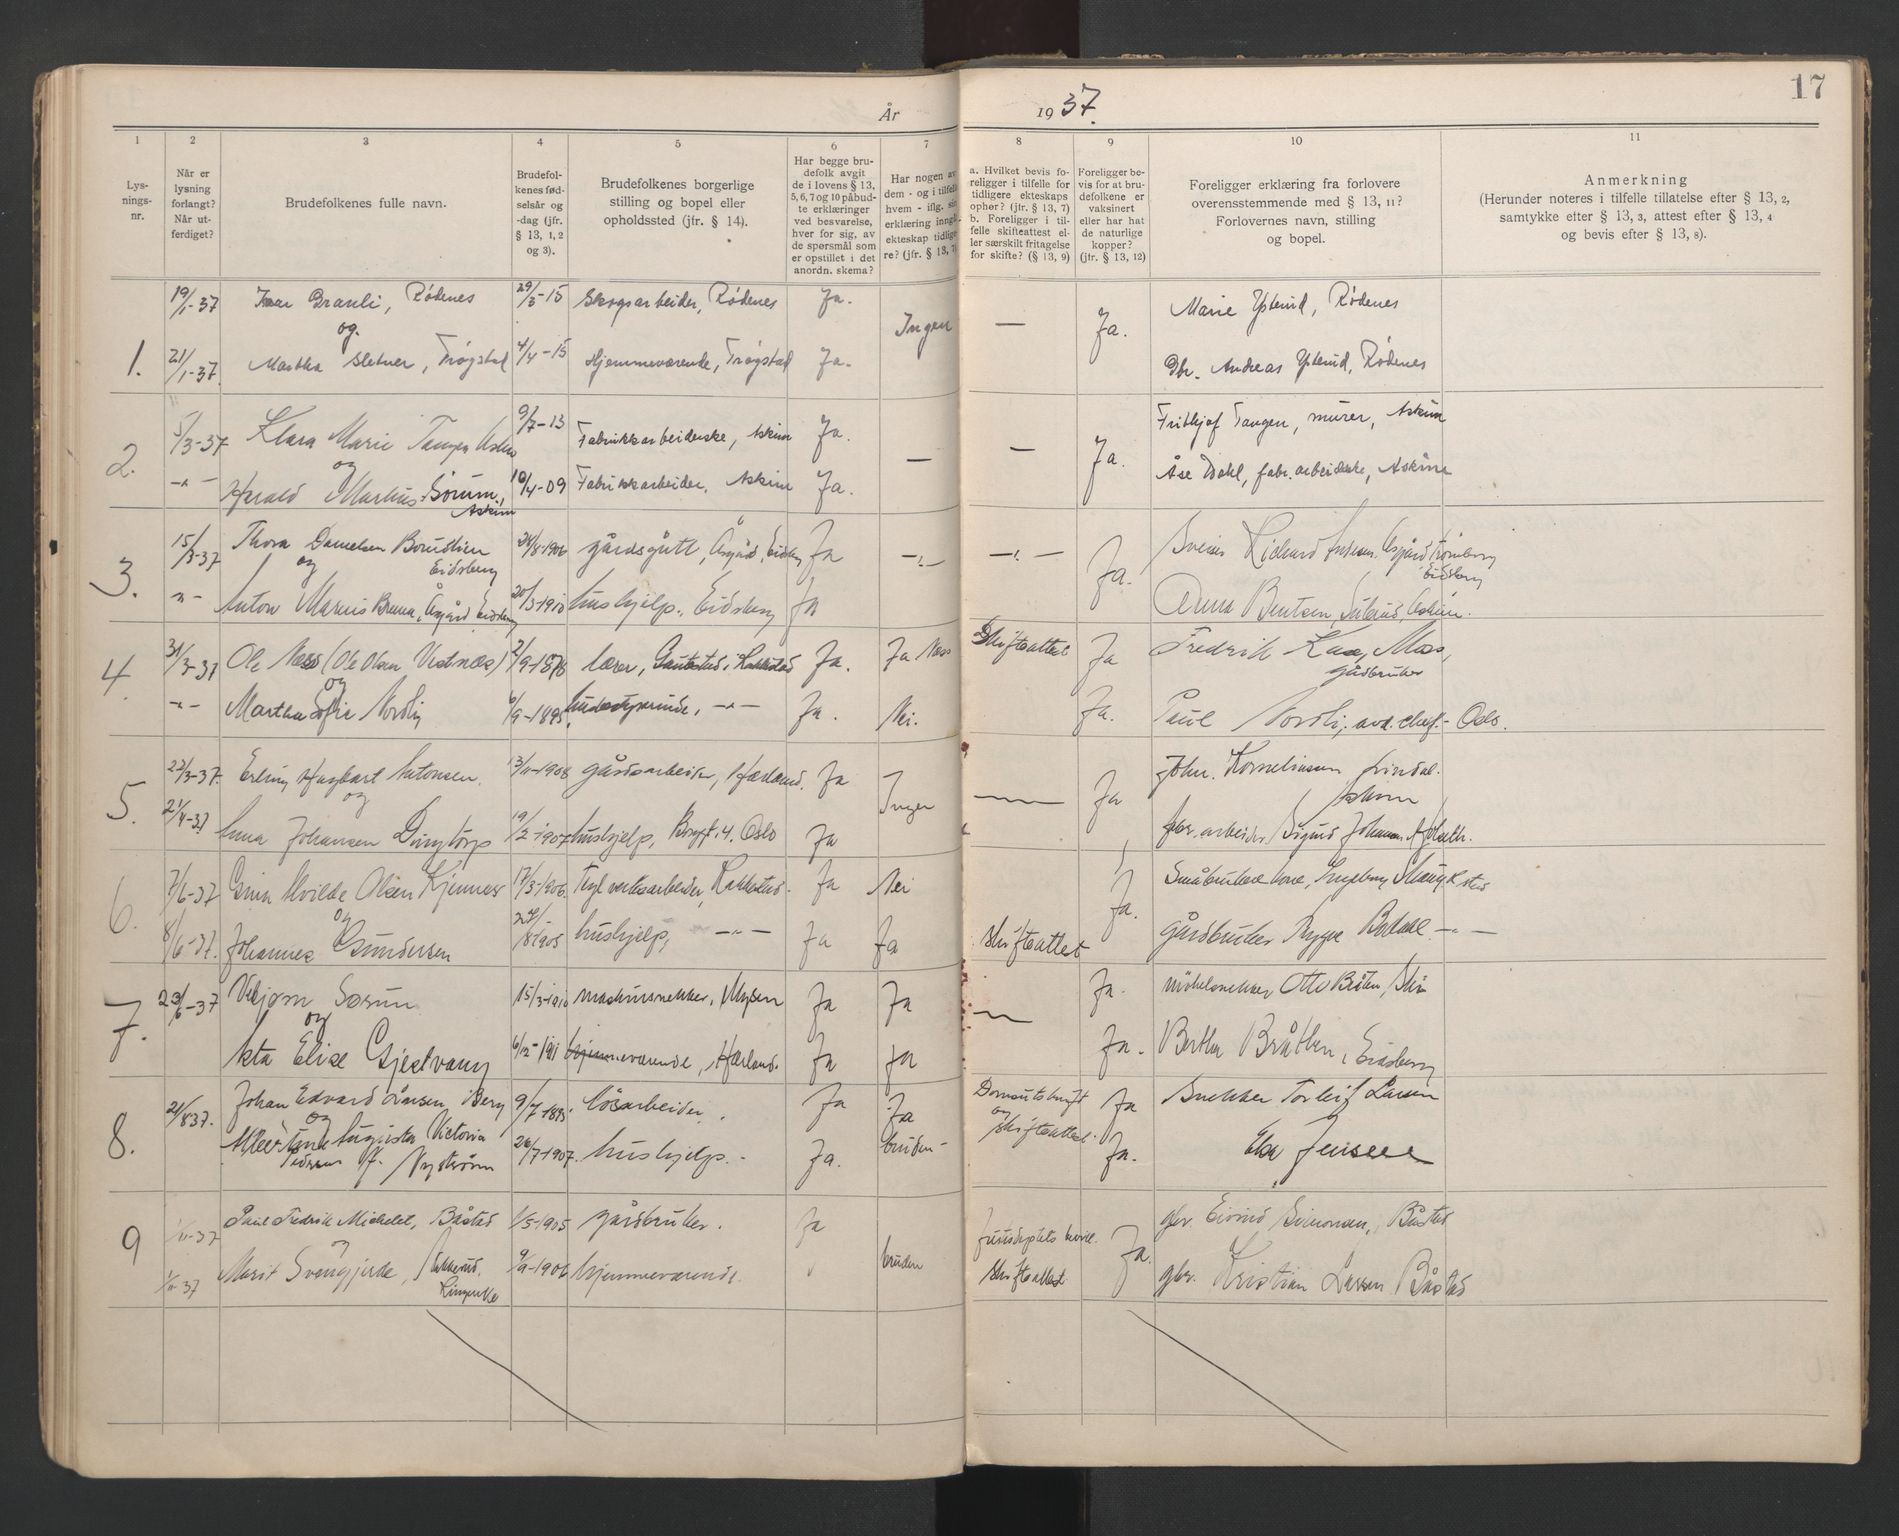 17
År 1937.
1 2 3 4 5 6 7 8 9 10 11
Lys-
nings-
nr.
Når er
lysning
forlangt?
Når ut-
ferdiget?
Brudefolkenes fulle navn.
Brudefol-
kenes fød-
selsår og
-dag (jfr.
§ 13, 1, 2
og 3).
Brudefolkenes borgerlige
stilling og bopel eller
opholdssted (jfr. § 14).
Har begge bru-
defolk avgit
de i lovens § 13,
5, 6, 7 og 10 påbud-
te erklæringer
ved besvarelse,
hver for sig, av
de spørsmål som
er opstillet i det
anordn. skema?
Har nogen av
dem - og i tilfelle
hvem - iflg. sin
erklæring inngått
ekteskap tidlige-
re? (jfr. § 13, 7)
a. Hvilket bevis fo-
religger i tilfelle for
tidligere ekteskaps
ophør? (jfr. § 13, 7)
b. Foreligger i til-
felle skifteattest el-
ler særskilt fritagelse
for skifte? (§ 13, 9)
Foreligger be-
vis for at bru-
defolkene er
vaksinert
eller har hat
de naturlige
kopper?
(jfr. § 13, 12)
Foreligger erklæring fra forlovere
overensstemmende med § 13, 11?
Forlovernes navn, stilling
og bopel.
Anmerkning
(Herunder noteres i tilfelle tillatelse efter § 13, 2,
samtykke efter § 13, 3, attest efter § 13, 4
og bevis efter § 13, 8).
19/1-37 Brauli, Rødenes 29/3-15 Skogsarbeider, Rødenes Ja. Marie Ysterud, Rødenes
og Ingen — Ja.
1. 21/1-37. Martha Sletner, Trøgstad 4/4-15 Hjemmeværende, Trøgstad Ja. Gbr. Andreas Ysterud, Rødenes
5/3-37 Klara Marie Tangen Askim 9/7-13 Fabrikkarbeiderske, Askim Ja. Frithjof Tangen, murer, Askim
2. og — — Ja.
-"- Harald Markus Sørum, Askim 16/4-09 Fabrikkarbeider, Askim Ja. Åse Dahl, fabr. arbeiderske, Askim
15/3-37 Thora Danielsen Eidsberg 24/8-1906 gårdsgutt, Åsgård, Eidsberg Ja -"- -"- Richard Åsgård, Eidsberg
3. og Ja.
-"- Anton Marius Åsgård Eidsberg 20/3-1910 hushjelp, Eidsberg Ja Anna Bentsen, Askim.
31/3-37 Ole Næss (Ole Olsen Vestnæs) 2/9-1878 lærer, Rakkestad Ja. Ja Skifteattest Ja Fredrik Moss, gårdbruker
4. og
-"- Martha Sofie Nordli 6/9-1895. husbestyrerinde, -"- Ja. Nei. Ja. Paul Nordli, avd. chef. - Oslo.
23/3-37. Erling Hagbart Antonsen. 13/11-1908 gårdsarbeider, Hærland. Ja John. Korneliussen Lindal.
5. og Ingen — Ja Askim
21/4-37. Anna Johansen 19/2-1907 hushjelp, Oslo Ja fabr. arbeider Sigurd Johansen
7/6-37 Olsen Kjennes 17/3-1906. Teglverksarbeider, Rakkestad. Ja Nei Småbruker Ingeborg
6. og Ja.
8/6-37. Johannes Gundersen 24/8 1905 hushjelp, -"- Ja Ja Skifteattest gårdbruker -"-
23/6-37 Vebjørn Sørum 15/3-1910 maskinsnekker, Mysen Ja Ja Ja. møbelsnekker Otto Ski
7. og —
Asta Elise Gjestvang 6/12-1911 hjemmeværende, Hærland. Ja Ja Ja. Berthe Bråthen, Eidsberg
21/8 37. Johan Edvard Larsen Berg 9/7-1895. løsarbeider. Ja Ja Domsutskrift Ja Snekker Torleif Larsen
8. og og
Augusta Victoria Nystrøm 26/7-1907. hushjelp. - Ja. bruden - skifteattest. Ja. Elsa Jensen
1/11-37 Paul Fredrik Michelet, Båstad 1/5-1905 gårdbruker. Ja gbr. Eivind Simonsen, Båstad
9 og bruden Ja.
1/11-37 Marit 9/9-1906 hjemmeværende. skifteattest gbr. Kristian Larsen Båstad